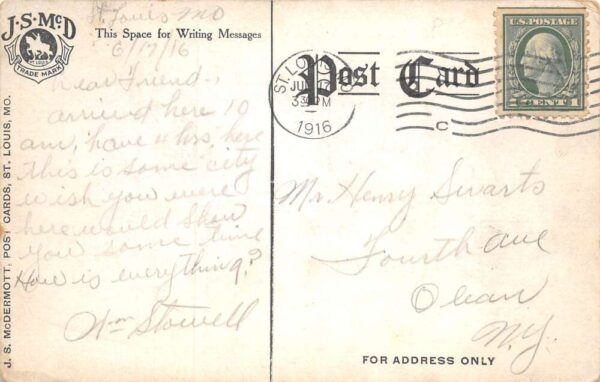 J.S.McD
ST. LOUIS
TRADE MARK
J. S. McDERMOTT, POST CARDS, ST. LOUIS, MO.
St. Louis MO
This Space for Writing Messages
6/17/16
Dear Friend,
arrived here 10
am, have 4 hrs here
this is some city
wish you were
here would show
you some time
How is everything?
Wm Stowell
Post Card
ST. LOUIS
JUN 17
3 PM
1916
C
U.S. POSTAGE
1 CENT 1
Mr. Henry Swarts
Fourth Ave
Olean
N.Y.
FOR ADDRESS ONLY